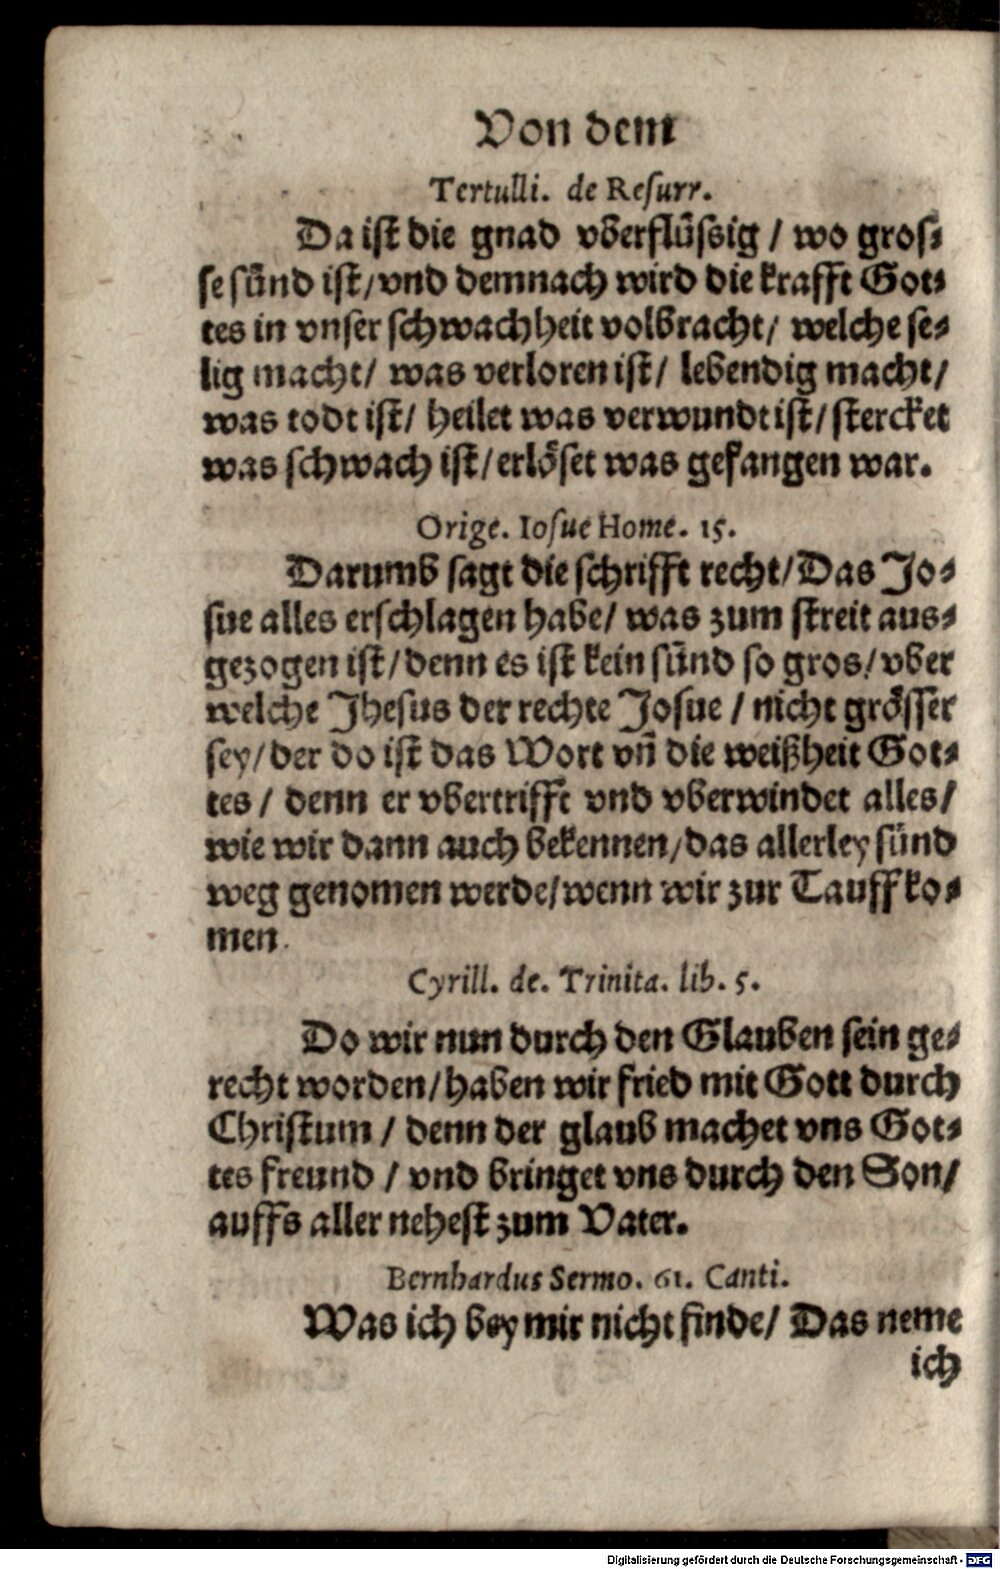 Von dem
Tertulli. de Resurr.
Da ist die gnad vberflüssig / wo gros⸗
se sünd ist / vnd demnach wird die krafft Got⸗
tes in vnser schwachheit volbracht / welche se⸗
lig macht / was verloren ist / lebendig macht /
was todt ist / heilet was verwundt ist / stercket
was schwach ist / erlöset was gefangen war.
Orige. Iosue Home. 15.
Darumb sagt die schrifft recht / Das Jo⸗
sue alles erschlagen habe / was zum streit aus⸗
gezogen ist / denn es ist kein sünd so gros / vber
welche Jhesus der rechte Josue / nicht grösser
sey / der do ist das Wort vñ die weißheit Got⸗
tes / denn er vbertrifft vnd vberwindet alles /
wie wir dann auch bekennen / das allerley sünd
weg genomen werde / wenn wir zur Tauff ko⸗
men.
Cyrill. de. Trinita. lib. 5.
Do wir nun durch den Glauben sein ge⸗
recht worden / haben wir fried mit Gott durch
Christum / denn der glaub machet vns Got⸗
tes freund / vnd bringet vns durch den Son /
auffs aller nehest zum Vater.
Bernhardus Sermo. 61. Canti.
Was ich bey mir nicht finde / Das neme
ich
Digitalisierung gefördert durch die Deutsche Forschungsgemeinschaft - DFG